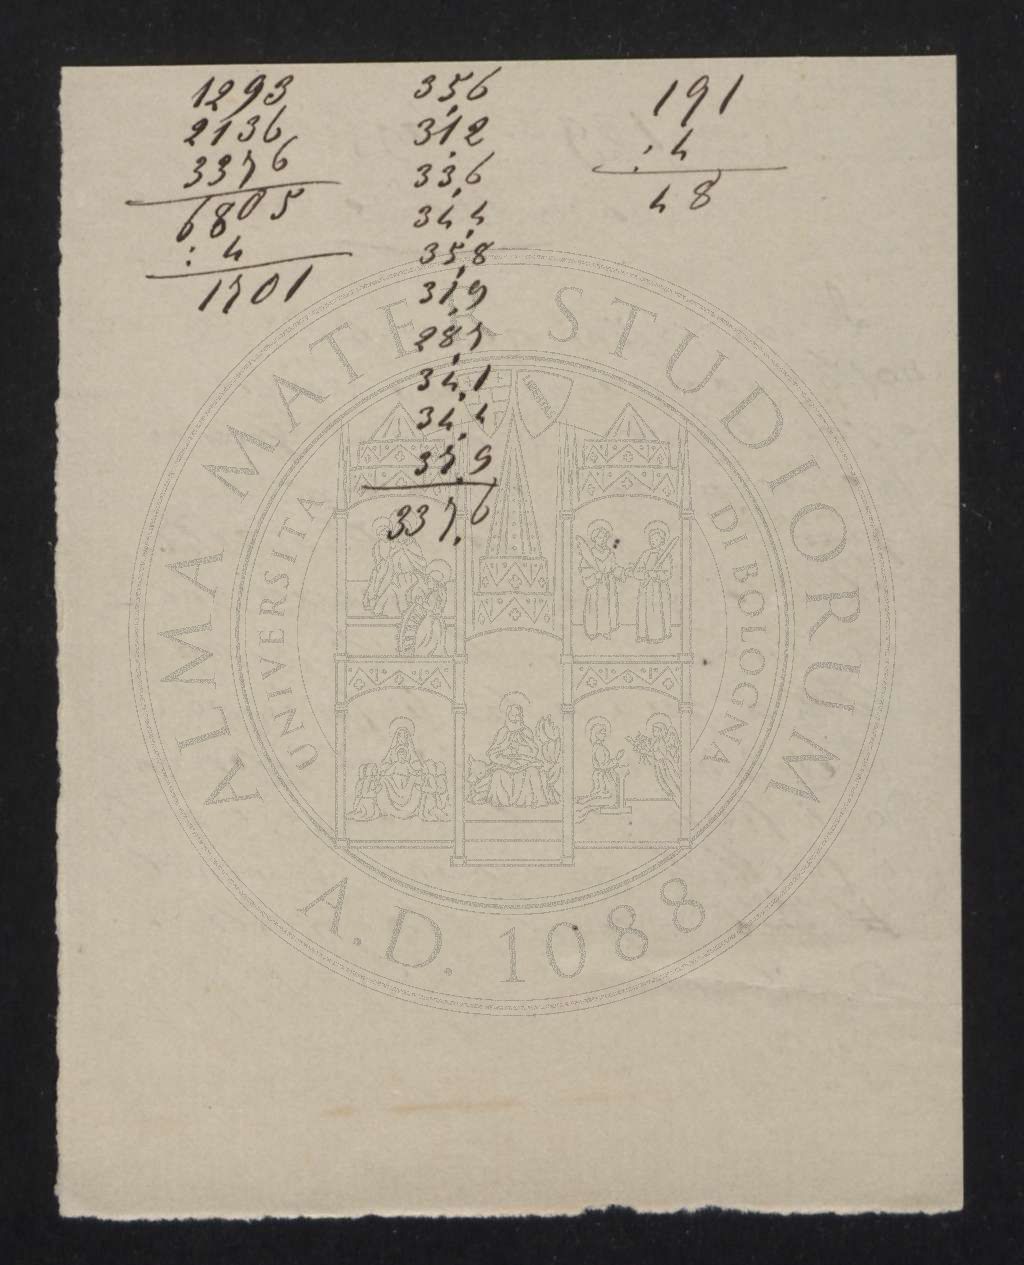 1293
2136
3376
6805
: 4
1701
35,6
31,2
33,6
34,4
35,8
31,9
28,7
34,1
34,4
37,9
337,6
191
: 4
48
ALMA MATER STUDIORUM
A.D. 1088
UNIVERSITA DI BOLOGNA
LIBERTAS